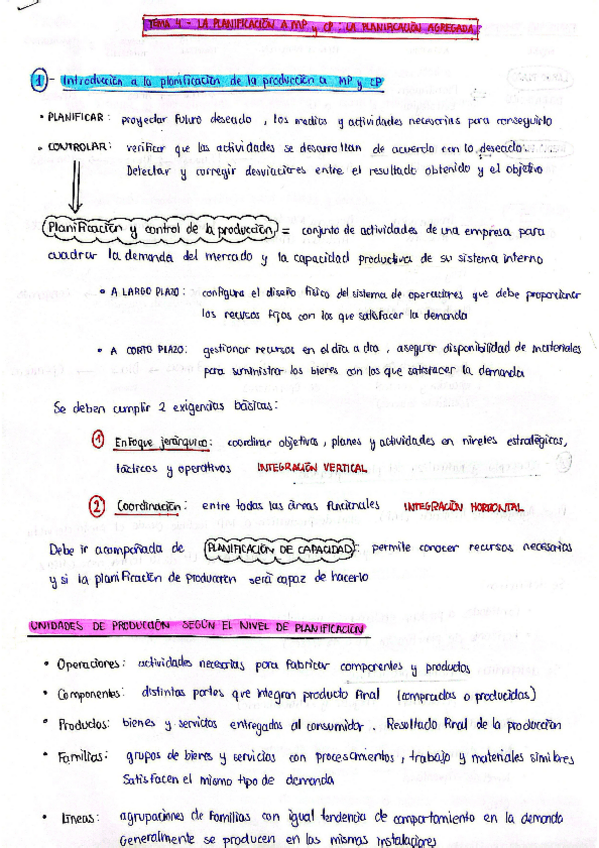 TEMA 4 - LA PLANIFICACIÓN A MP y CP: LA PLANIFICACIÓN AGREGADA
1 - Introducción a la planificación de la producción a MP y CP
• PLANIFICAR: proyectar futuro deseado, los medios y actividades necesarias para conseguirlo
• CONTROLAR: verificar que las actividades se desarrollan de acuerdo con lo deseado.
Detectar y corregir desviaciones entre el resultado obtenido y el objetivo
Planificación y control de la producción = conjunto de actividades de una empresa para
cuadrar la demanda del mercado y la capacidad productiva de su sistema interno
• A LARGO PLAZO: configura el diseño físico del sistema de operaciones que debe proporcionar
los recursos fijos con los que satisfacer la demanda
• A CORTO PLAZO: gestionar recursos en el día a día, asegurar disponibilidad de materiales
para suministrar los bienes con los que satisfacer la demanda
Se deben cumplir 2 exigencias básicas:
1 Enfoque jerárquico: coordinar objetivos, planes y actividades en niveles estratégicos,
tácticos y operativos INTEGRACIÓN VERTICAL
2 Coordinación: entre todas las áreas funcionales INTEGRACIÓN HORIZONTAL
Debe ir acompañada de PLANIFICACIÓN DE CAPACIDAD: permite conocer recursos necesarios
y si la planificación de producción será capaz de hacerlo
UNIDADES DE PRODUCCIÓN SEGÚN EL NIVEL DE PLANIFICACIÓN
• Operaciones: actividades necesarias para fabricar componentes y productos
• Componentes: distintas partes que integran producto final (compradas o producidas)
• Productos: bienes y servicios entregados al consumidor. Resultado final de la producción
• Familias: grupos de bienes y servicios con procesamientos, trabajo y materiales similares
Satisfacen el mismo tipo de demanda
• Líneas: agrupaciones de familias con igual tendencia de comportamiento en la demanda
Generalmente se producen en las mismas instalaciones